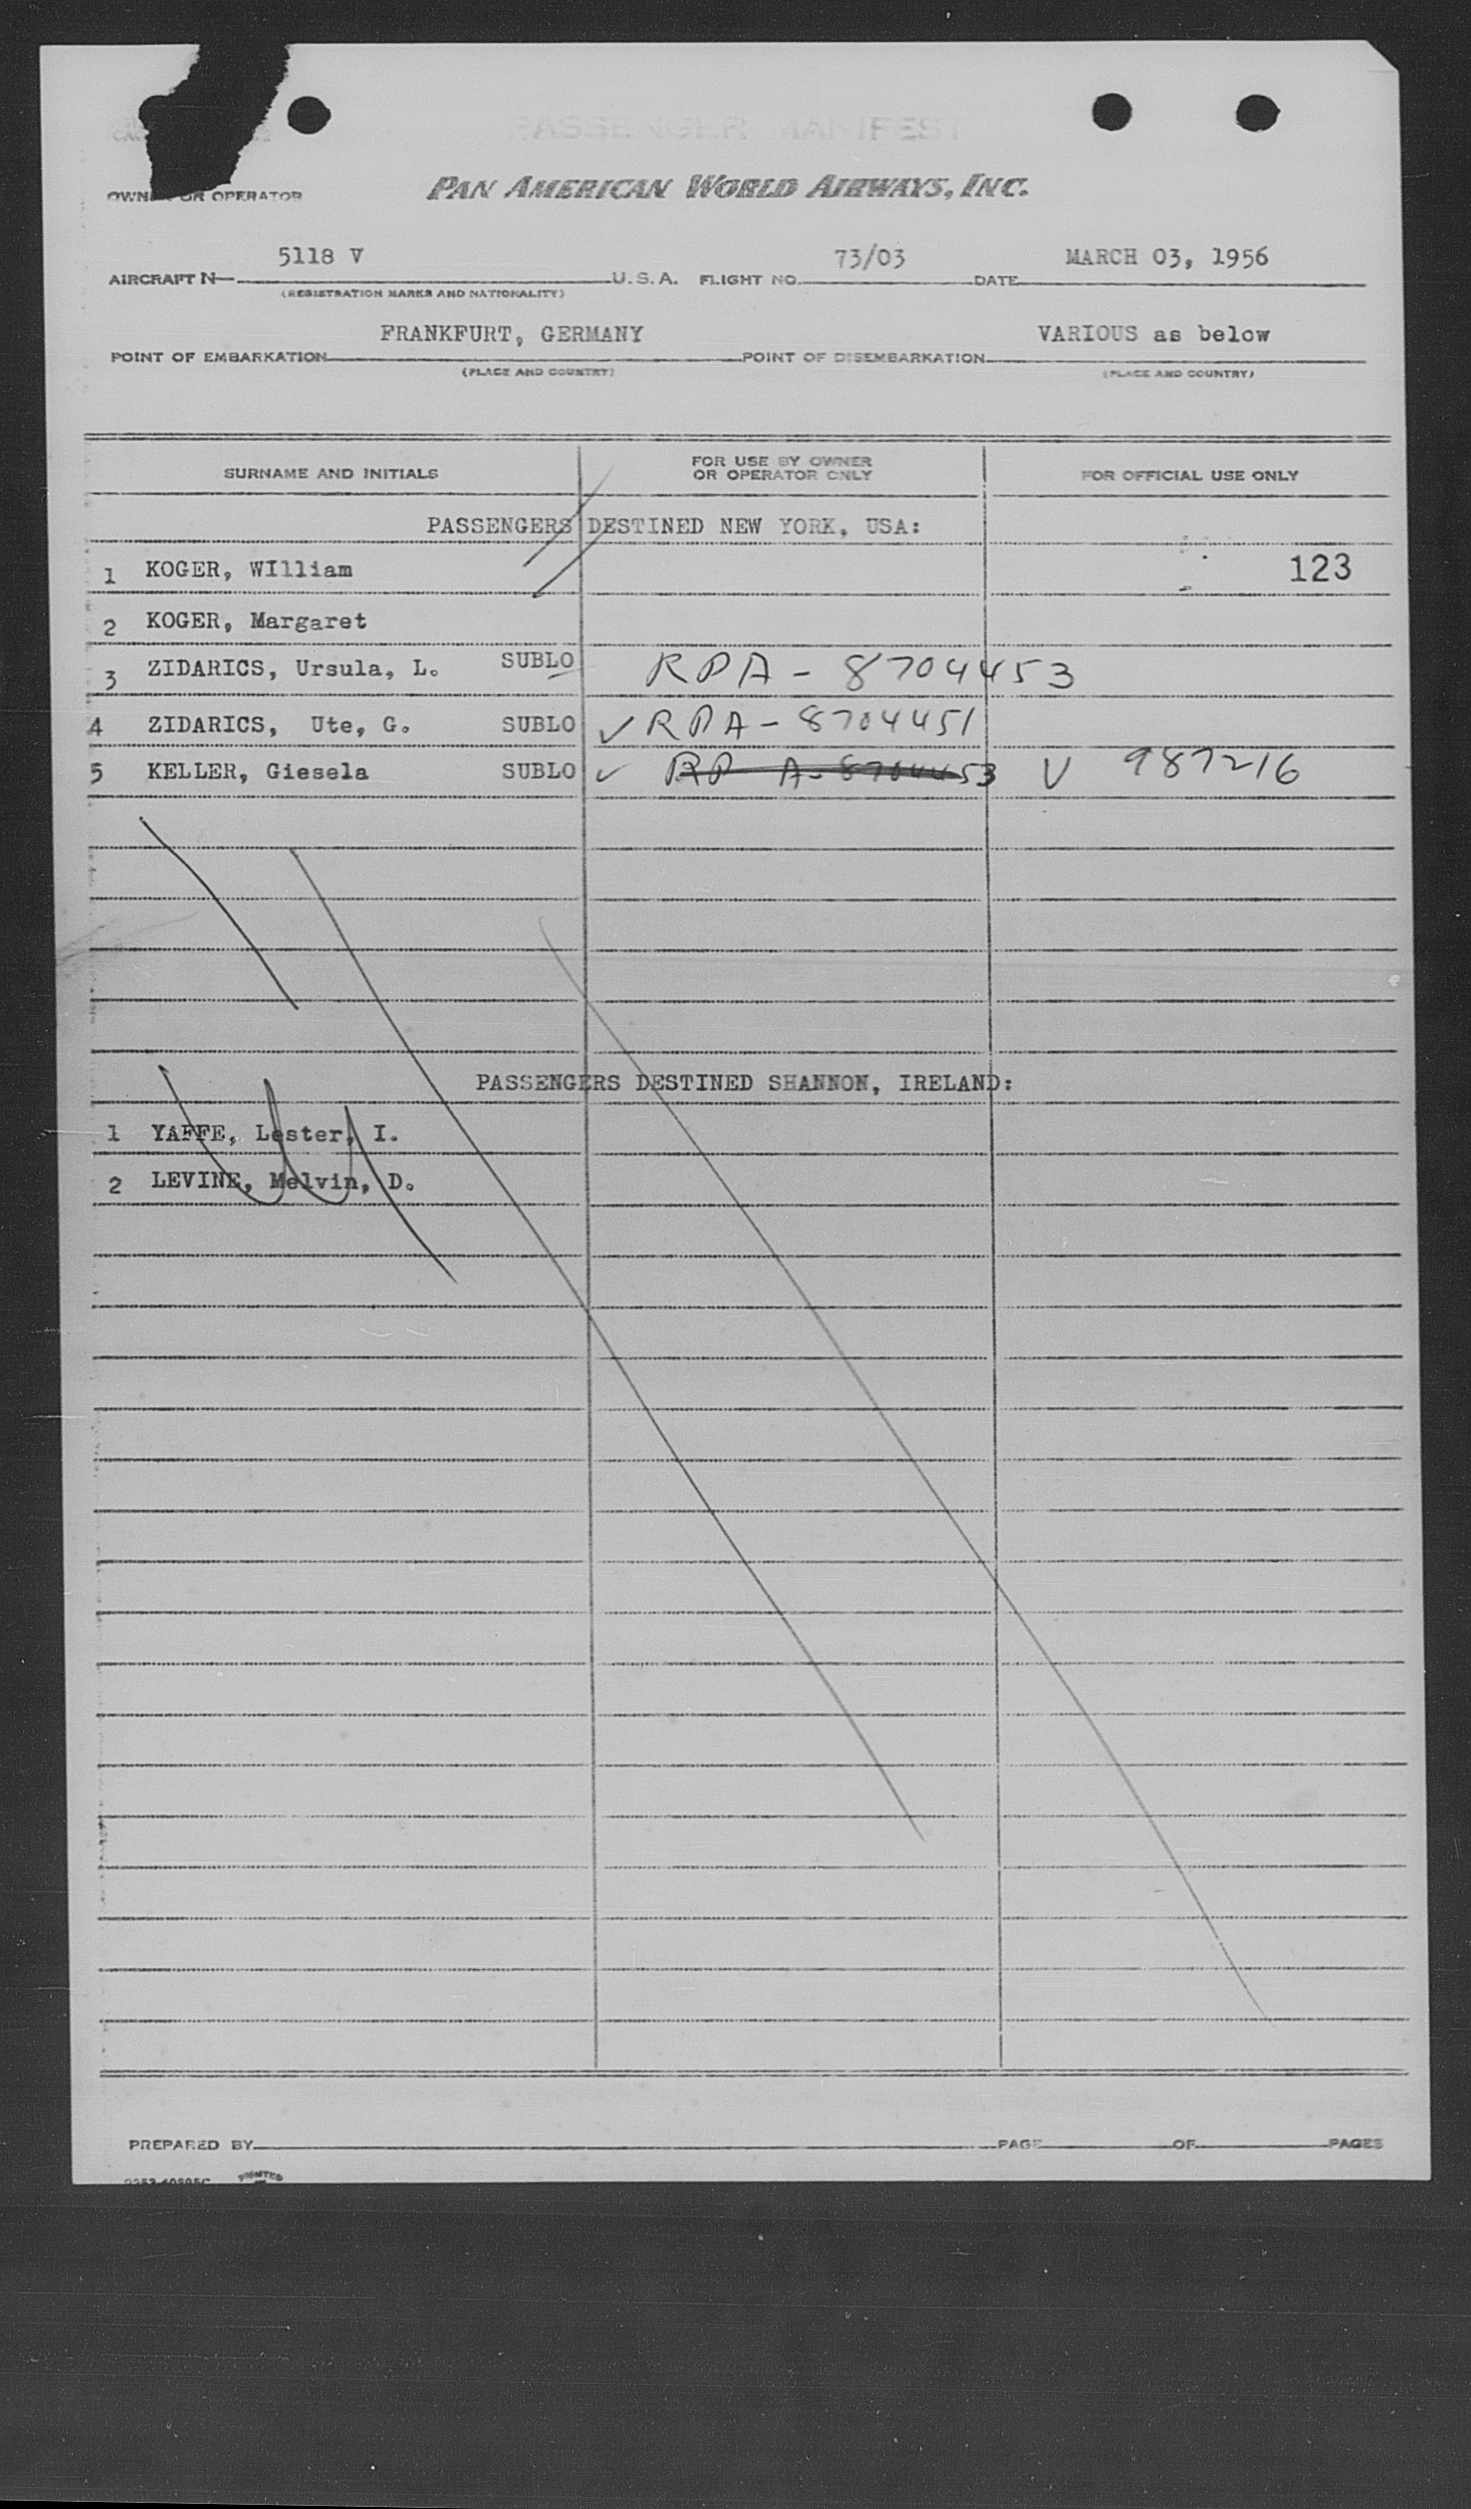 PASSENGER MANIFEST
OWNER OR OPERATOR PAN AMERICAN WORLD AIRWAYS, INC.
5118 V 73/03 MARCH 03, 1956
AIRCRAFT N U.S.A. FLIGHT NO. DATE
(REGISTRATION MARKS AND NATIONALITY)
FRANKFURT, GERMANY VARIOUS as below
POINT OF EMBARKATION POINT OF DISEMBARKATION
(PLACE AND COUNTRY) (PLACE AND COUNTRY)
SURNAME AND INITIALS FOR USE BY OWNER OR OPERATOR ONLY FOR OFFICIAL USE ONLY
PASSENGERS DESTINED NEW YORK, USA:
1 KOGER, WIlliam 123
2 KOGER, Margaret
3 ZIDARICS, Ursula, L. SUBLO RPA - 8704453
4 ZIDARICS, Ute, G. SUBLO ✓ RPA - 8704451
5 KELLER, Giesela SUBLO ✓ RP A - 8704453 V 987216
PASSENGERS DESTINED SHANNON, IRELAND:
1 YAFFE, Lester, I.
2 LEVINE, Melvin, D.
PREPARED BY PAGE OF PAGES
PRINTED